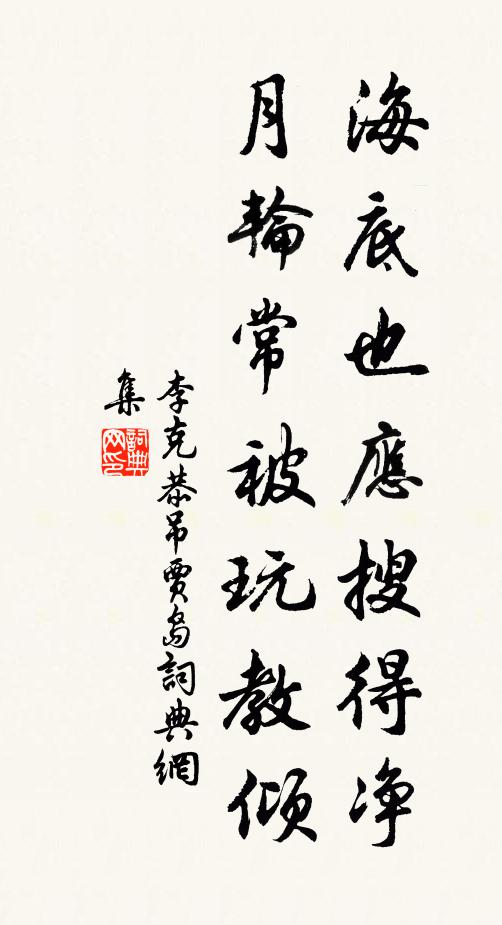 海底也應搜得净
月輪常被玩教傾
李克恭吊賈島詞典網
集
詞典
网印